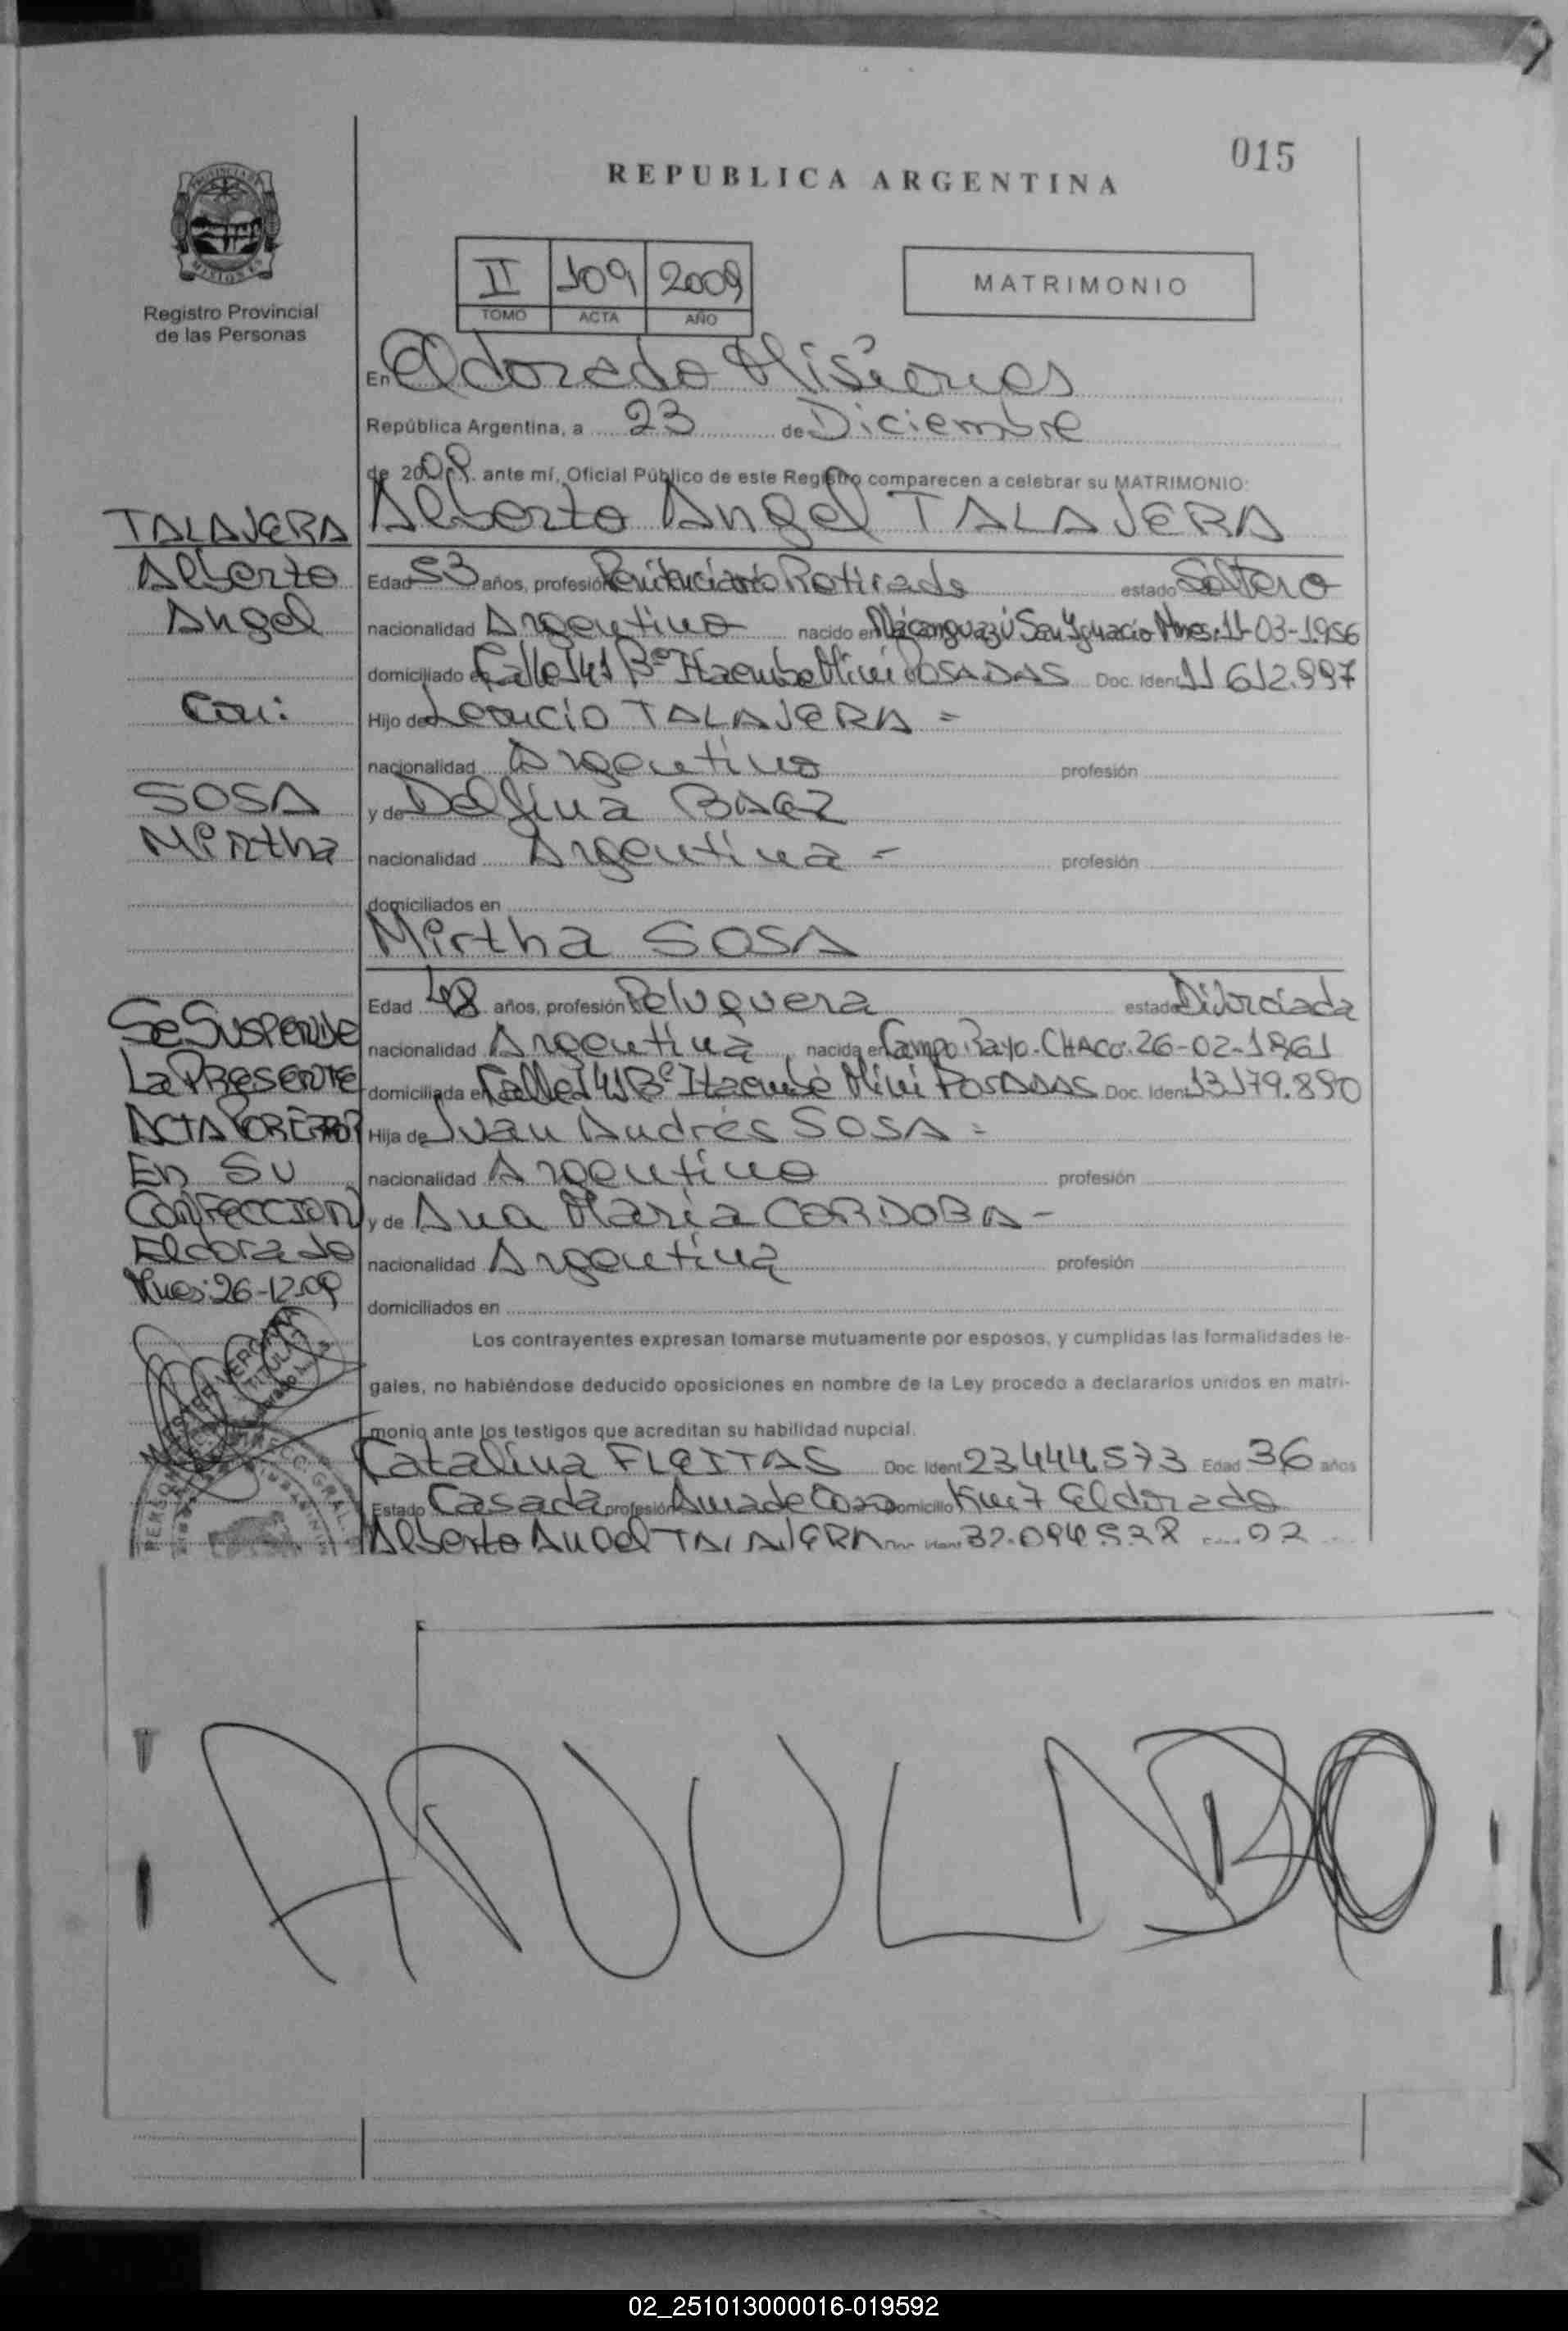 015
REPUBLICA ARGENTINA
PROVINCIA DE
MISIONES
Registro Provincial
de las Personas
II 109 2009
TOMO ACTA AÑO
MATRIMONIO
En Eldorado Misiones
República Argentina, a 23 de Diciembre
de 2009. ante mí, Oficial Público de este Registro comparecen a celebrar su MATRIMONIO:
Alberto Angel TALAVERA
Edad 53 años, profesión Penitenciario Retirado estado Soltero
nacionalidad Argentino nacido en San Ignacio Mnes. 11-03-1956
domiciliado en Calle 141 Bº Itaembe Mini POSADAS Doc. Ident. 11 612.997
Hijo de Leoncio TALAVERA =
nacionalidad Argentino profesión
y de Delfina BAEZ
nacionalidad Argentina = profesión
domiciliados en
Mirtha SOSA
Edad 48 años, profesión Peluquera estado Divorciada
nacionalidad Argentina nacida en Campo Rayo - CHACO. 26-02-1961
domiciliada en Calle 141 Bº Itaembé Mini POSADAS Doc. Ident. 13179.890
Hija de Juan Andrés SOSA =
nacionalidad Argentino profesión
y de Ana María CORDOBA -
nacionalidad Argentina profesión
domiciliados en
Los contrayentes expresan tomarse mutuamente por esposos, y cumplidas las formalidades le-
gales, no habiéndose deducido oposiciones en nombre de la Ley procedo a declararlos unidos en matri-
monio ante los testigos que acreditan su habilidad nupcial.
Catalina FLEITAS Doc. Ident. 23444573 Edad 36 años
Estado Casada profesión Ama de Casa domicilio Km 7 Eldorado
Alberto Angel TALAVERA
TALAVERA
Alberto
Angel
Con:
SOSA
Mirtha
Se SUSPENDE
La PRESENTE
ACTA POR ERROR
En SU
CONFECCION
Eldorado
Mnes: 26-12-09
TITULAR
ANULADO
02_251013000016-019592